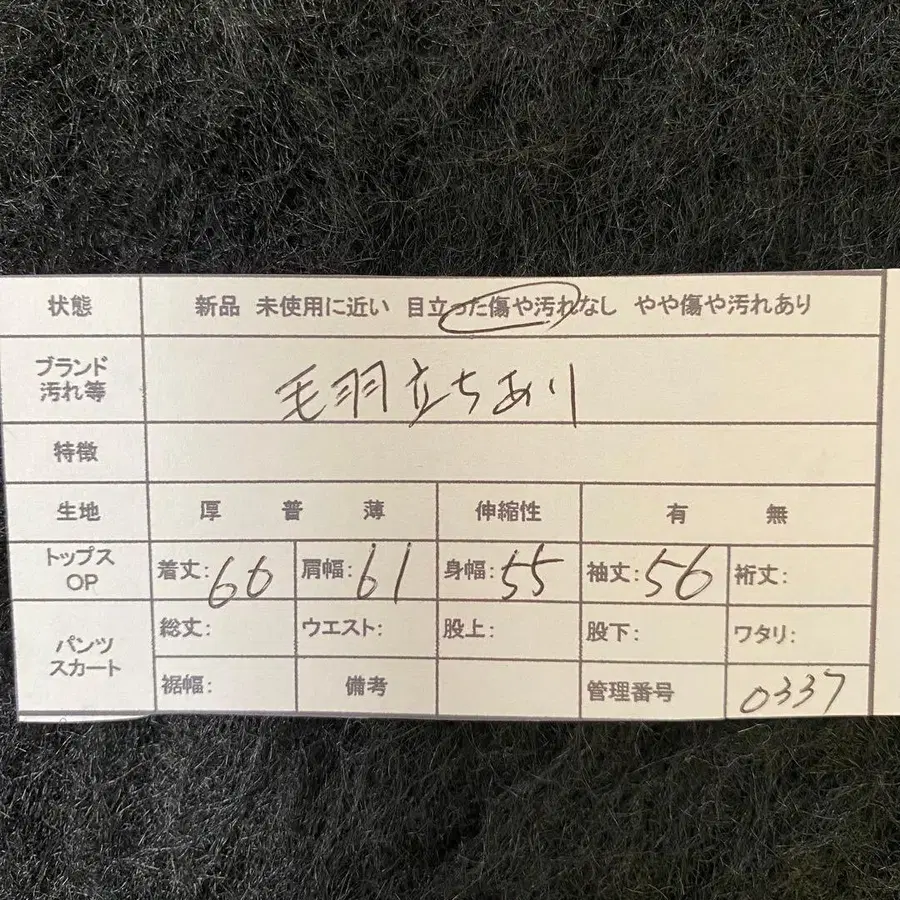 状態 新品 未使用に近い 目立った傷や汚れなし やや傷や汚れあり
ブランド
汚れ等
毛羽立ちあり
特徴
生地 厚 普 薄 伸縮性 有 無
トップス
OP
着丈:66 肩幅:61 身幅:55 袖丈:56 裄丈:
パンツ
スカート
総丈: ウエスト: 股上: 股下: ワタリ:
裾幅: 備考 管理番号 0337